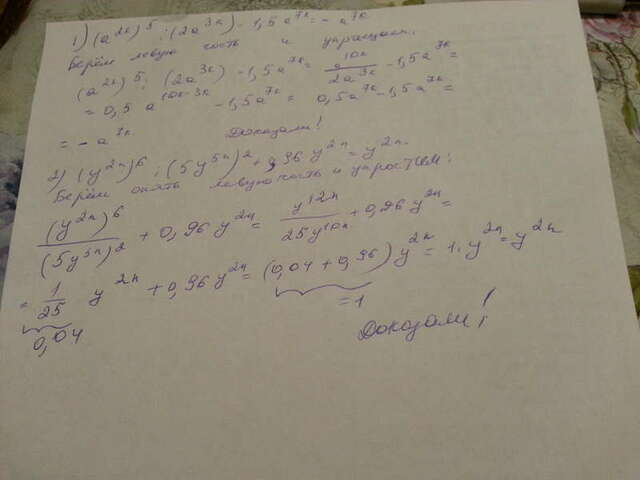 1) (a^{2k})^5 : (2a^{3k}) - 1,5a^{7k} = - a^{7k}
Берём левую часть и упрощаем:
(a^{2k})^5 : (2a^{3k}) - 1,5a^{7k} = \frac{a^{10k}}{2a^{3k}} - 1,5a^{7k} =
= 0,5 a^{10k-3k} - 1,5a^{7k} = 0,5a^{7k} - 1,5a^{7k} =
= - a^{7k} Доказали!
2) (y^{2n})^6 : (5y^{5n})^2 + 0,96 y^{2n} = y^{2n}.
Берём опять левую часть и упростим:
\frac{(y^{2n})^6}{(5y^{5n})^2} + 0,96 y^{2n} = \frac{y^{12n}}{25y^{10n}} + 0,96 y^{2n} =
= \frac{1}{25} y^{2n} + 0,96 y^{2n} = (0,04 + 0,96) y^{2n} = 1 \cdot y^{2n} = y^{2n}
0,04 =1
Доказали!